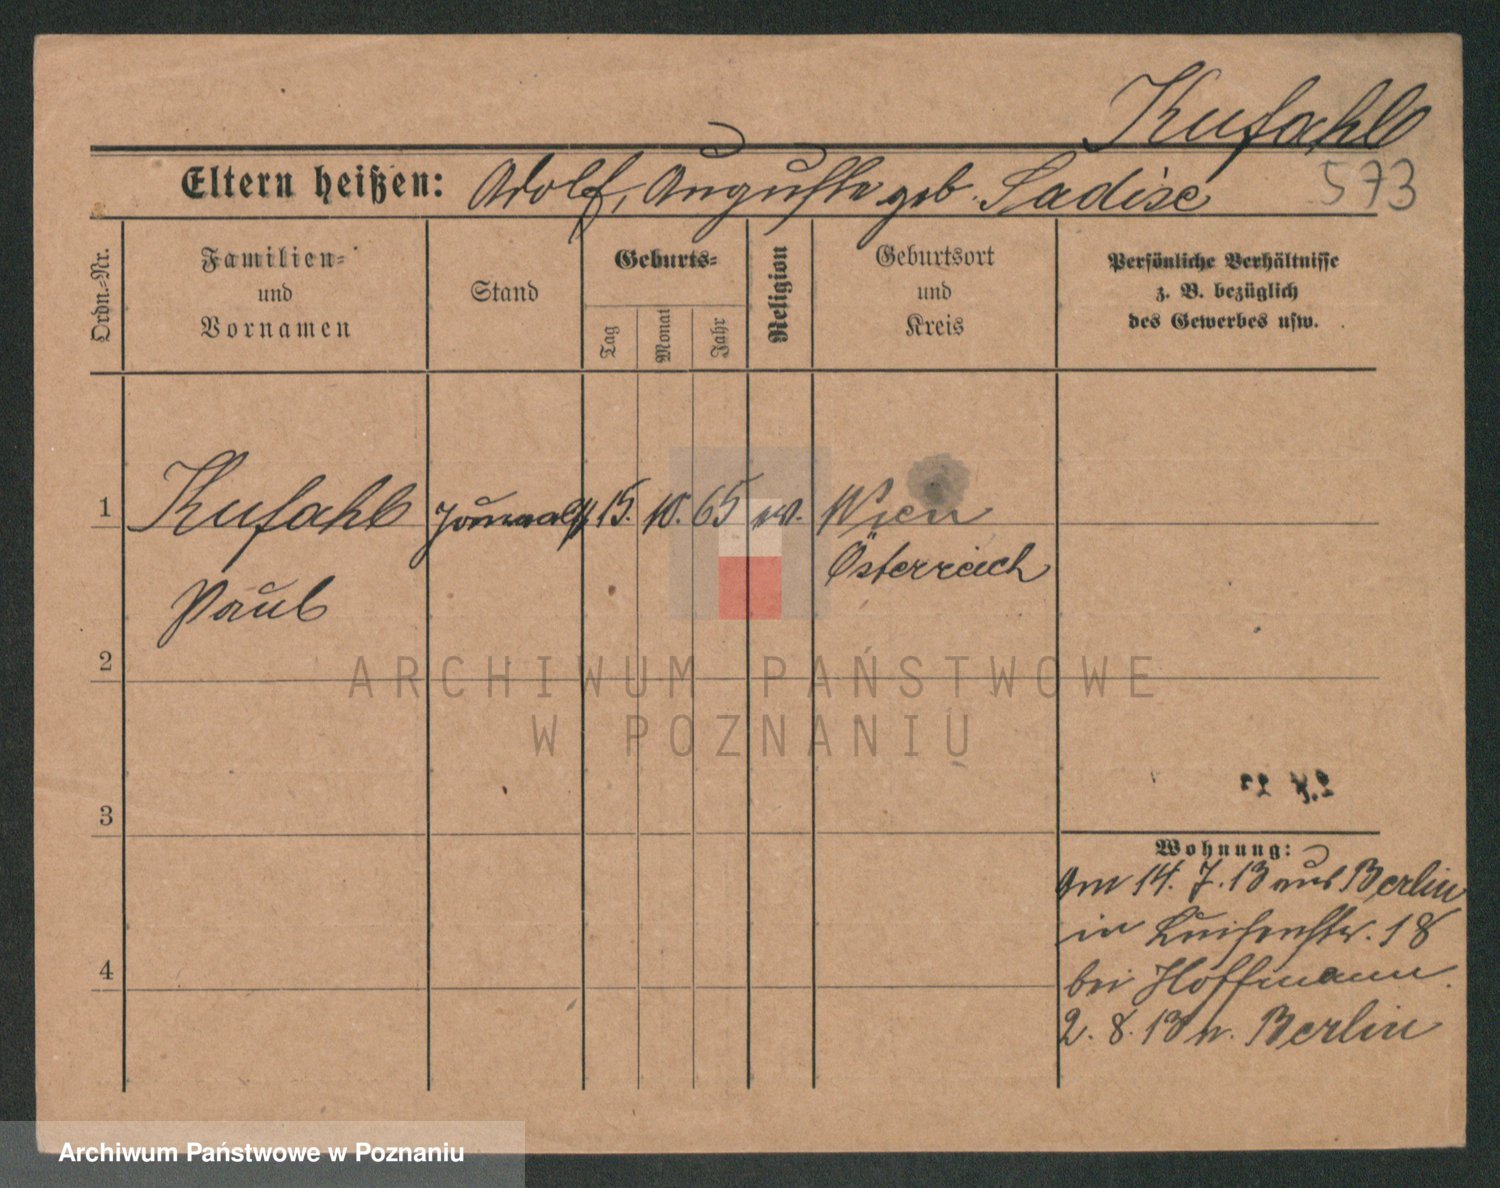 Kufahl
Eltern heißen: Adolf, Auguste geb. Sadise
573
Ordn.-Nr.
Familien-
und
Vornamen
Stand
Geburts-
Tag
Monat
Jahr
Religion
Geburtsort
und
Kreis
Persönliche Verhältnisse
z. B. bezüglich
des Gewerbes usw.
1 Kufahl 15. 10. 65 ev. Wien
Österreich
Paul
2
ARCHIWUM PAŃSTWOWE
W POZNANIU
3
Wohnung:
Am 14. 7. 13 aus Berlin
in Luisenstr. 18
bei Hoffmann.
4
2. 8. 13 n. Berlin
Archiwum Państwowe w Poznaniu